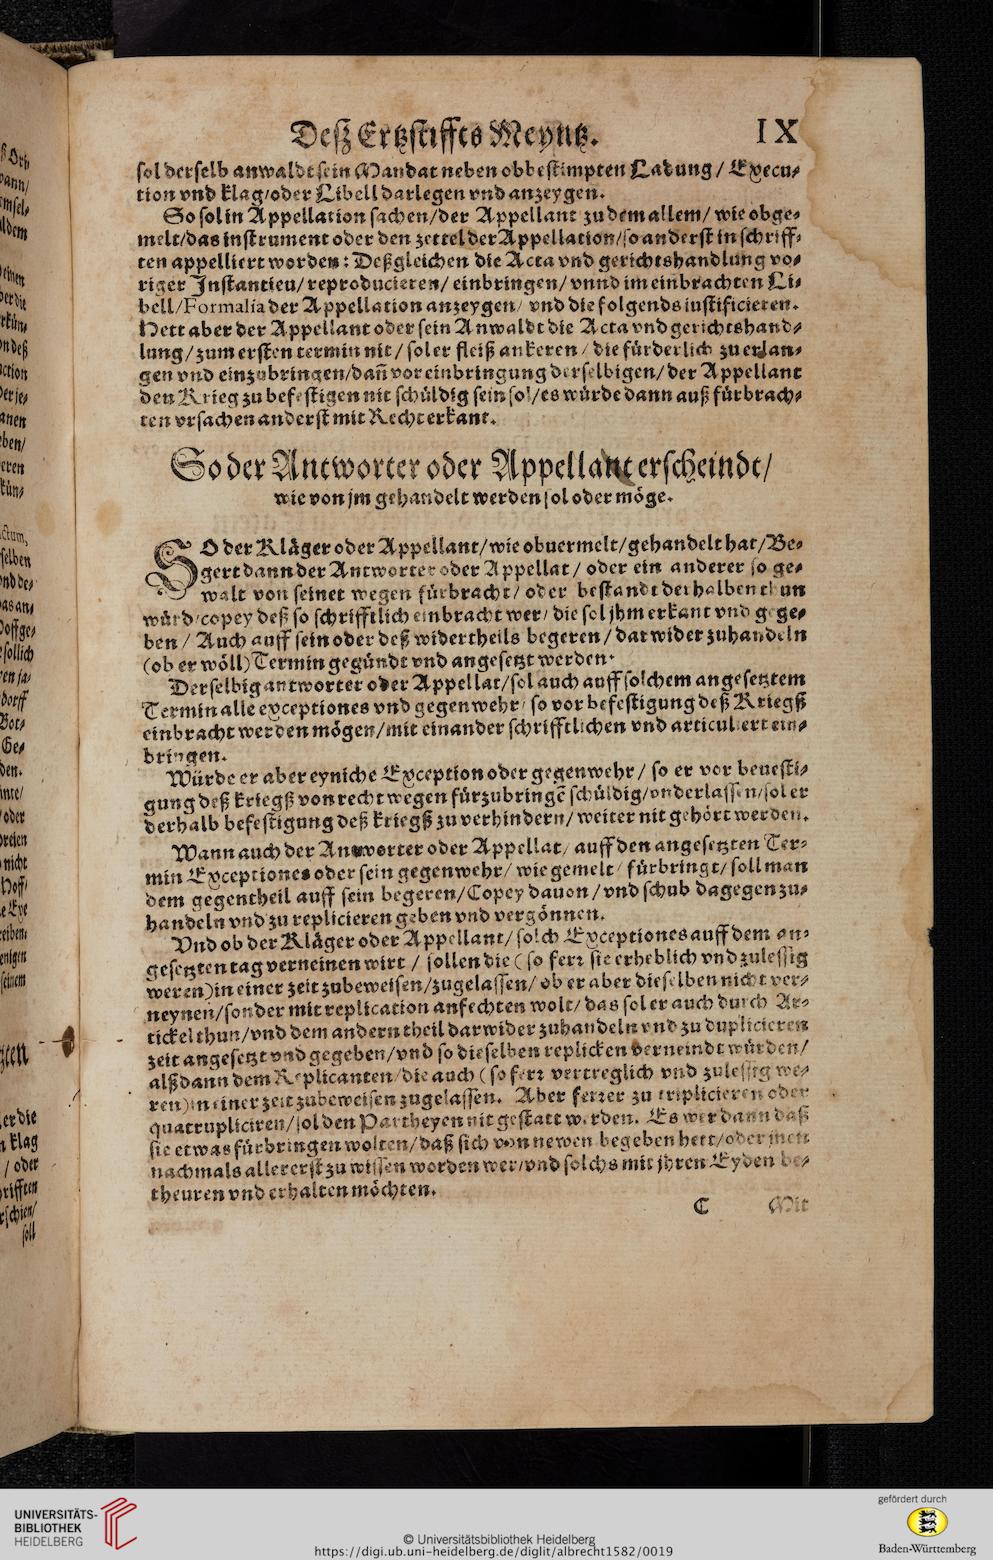 Deß Ertzstiffts Meyntz. IX
sol derselb anwaldt sein Mandat neben obbestimpten Ladung / Execu⸗
tion vnd klag/oder Libell darlegen vnd anzeygen.
So sol in Appellation sachen/der Appellant zu dem allem/ wie obge⸗
melt/das instrument oder den zettel der Appellation/so anderst in schriff⸗
ten appelliert worden: Deßgleichen die Acta vnd gerichtshandlung vo⸗
riger Instantien/ reproducieren/ einbringen/ vnnd im einbrachten Li⸗
bell/Formalia der Appellation anzeygen/ vnd die folgends iustificieren.
Hett aber der Appellant oder sein Anwaldt die Acta vnd gerichtshand⸗
lung/zum ersten termin nit/ sol er fleiß ankeren/ die fürderlich zu erlan⸗
gen vnd einzubringen/dañ vor einbringung derselbigen/der Appellant
den Krieg zu befestigen nit schüldig sein sol/es würde dann auß fürbrach⸗
ten vrsachen anderst mit Recht erkant.
So der Antworter oder Appellant erscheindt/
wie von jm gehandelt werden sol oder möge.
SO der Kläger oder Appellant/wie obuermelt/gehandelt hat/Be⸗
gert dann der Antworter oder Appellat/ oder ein anderer so ge⸗
walt von seinet wegen fürbracht/ oder bestandt derhalben thun
würd/copey deß so schrifftlich einbracht wer/ die sol jhm erkant vnd gege⸗
ben/ Auch auff sein oder deß widertheils begeren/ darwider zuhandeln
(ob er wöll) Termin gegündt vnd angesetzt werden.
Derselbig antworter oder Appellat/sol auch auff solchem angesetztem
Termin alle exceptiones vnd gegenwehr/ so vor befestigung deß Kriegß
einbracht werden mögen/mit einander schrifftlichen vnd articuliert ein⸗
bringen.
Würde er aber eyniche Exception oder gegenwehr/ so er vor beuesti⸗
gung deß kriegß von recht wegen fürzubringẽ schüldig/vnderlassen/sol er
derhalb befestigung deß kriegß zu verhindern/weiter nit gehört werden.
Wann auch der Antworter oder Appellat/ auff den angesetzten Ter⸗
min Exceptiones oder sein gegenwehr/ wie gemelt/ fürbringt/ soll man
dem gegentheil auff sein begeren/Copey dauon/vnd schub dagegen zu⸗
handeln vnd zu replicieren geben vnd vergönnen.
Vnd ob der Kläger oder Appellant/ solch Exceptiones auff dem an⸗
gesetzten tag verneinen wirt/ sollen die (so ferr sie erheblich vnd zulessig
weren) in einer zeit zubeweisen/zugelassen/ ob er aber dieselben nicht ver⸗
neynen/sonder mit replication anfechten wolt/ das sol er auch durch Ar⸗
tickel thun/vnd dem andern theil darwider zuhandeln vnd zu duplicieren
zeit angesetzt vnd gegeben/vnd so dieselben replicken verneindt würden/
alßdann dem Replicanten/die auch (so ferr vertreglich vnd zulessig we⸗
ren) in einer zeit zubeweisen zugelassen. Aber ferrer zu triplicieren oder
quatrupliciren/sol den Partheyen nit gestatt werden. Es wer dann daß
sie etwas fürbringen wolten/daß sich von newen begeben hett/oder jnen
nachmals allererst zu wissen worden wer/vnd solchs mit jhren Eyden be⸗
theuren vnd erhalten möchten.
C Mit
UNIVERSITÄTS-
BIBLIOTHEK
HEIDELBERG
© Universitätsbibliothek Heidelberg
https://digi.ub.uni-heidelberg.de/diglit/albrecht1582/0019
gefördert durch
Baden-Württemberg